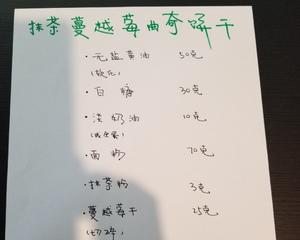 抹茶蔓越莓曲奇餅干
·无盐黄油 50克
(软化)
·白糖 30克
·淡奶油 10克
(或全蛋)
·面粉 70克
·抹茶粉 3克
·蔓越莓干 25克
(切碎)